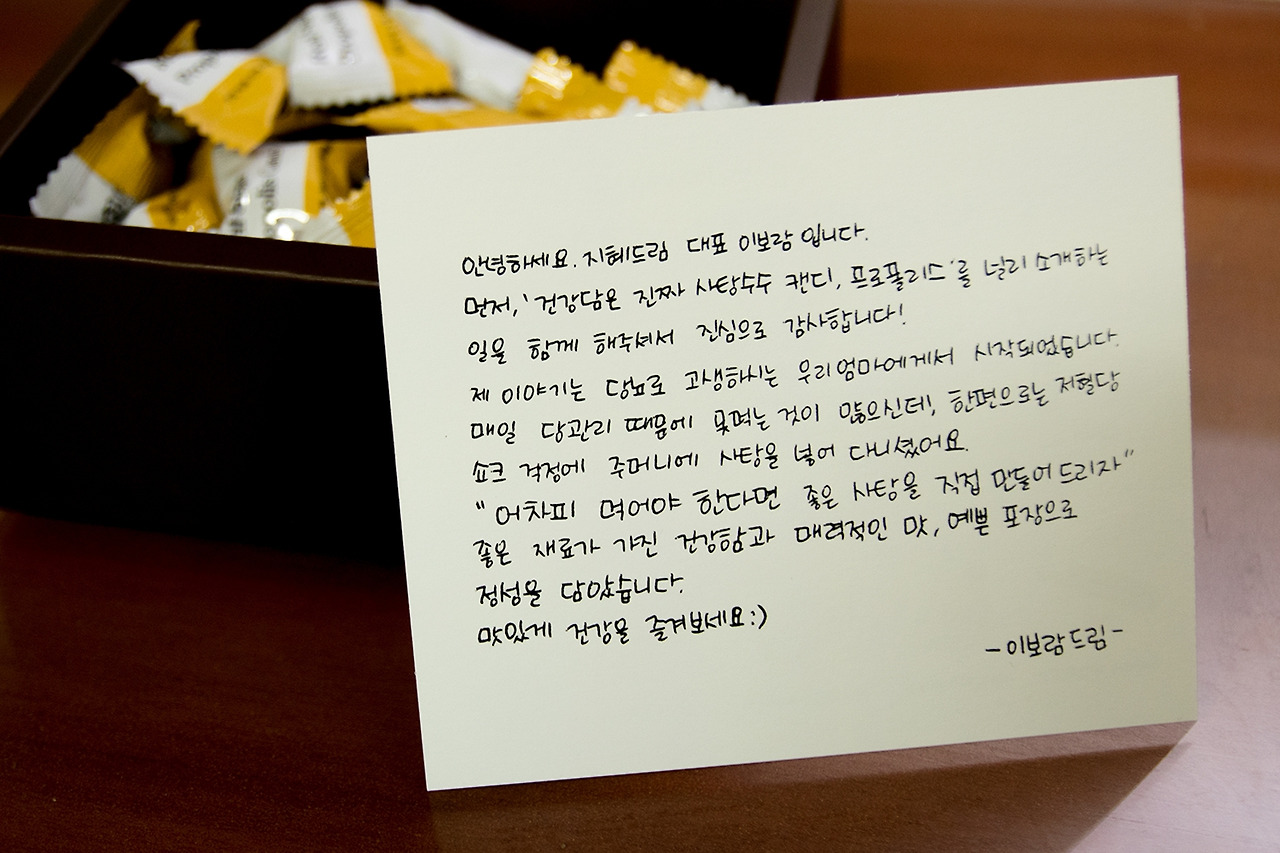 안녕하세요. 지혜드림 대표 이보람 입니다.
먼저, '건강담은 진짜 사탕수수 캔디, 프로폴리스'를 널리 소개하는
일을 함께 해주셔서 진심으로 감사합니다!
제 이야기는 당뇨로 고생하시는 우리엄마에게서 시작되었습니다.
매일 당관리 때문에 못먹는 것이 많으신데, 한편으로는 저혈당
쇼크 걱정에 주머니에 사탕을 넣어 다니셨어요.
"어차피 먹어야 한다면 좋은 사탕을 직접 만들어 드리자"
좋은 재료가 가진 건강함과 매력적인 맛, 예쁜 포장으로
정성을 담았습니다.
맛있게 건강을 즐겨보세요:)
- 이보람 드림 -